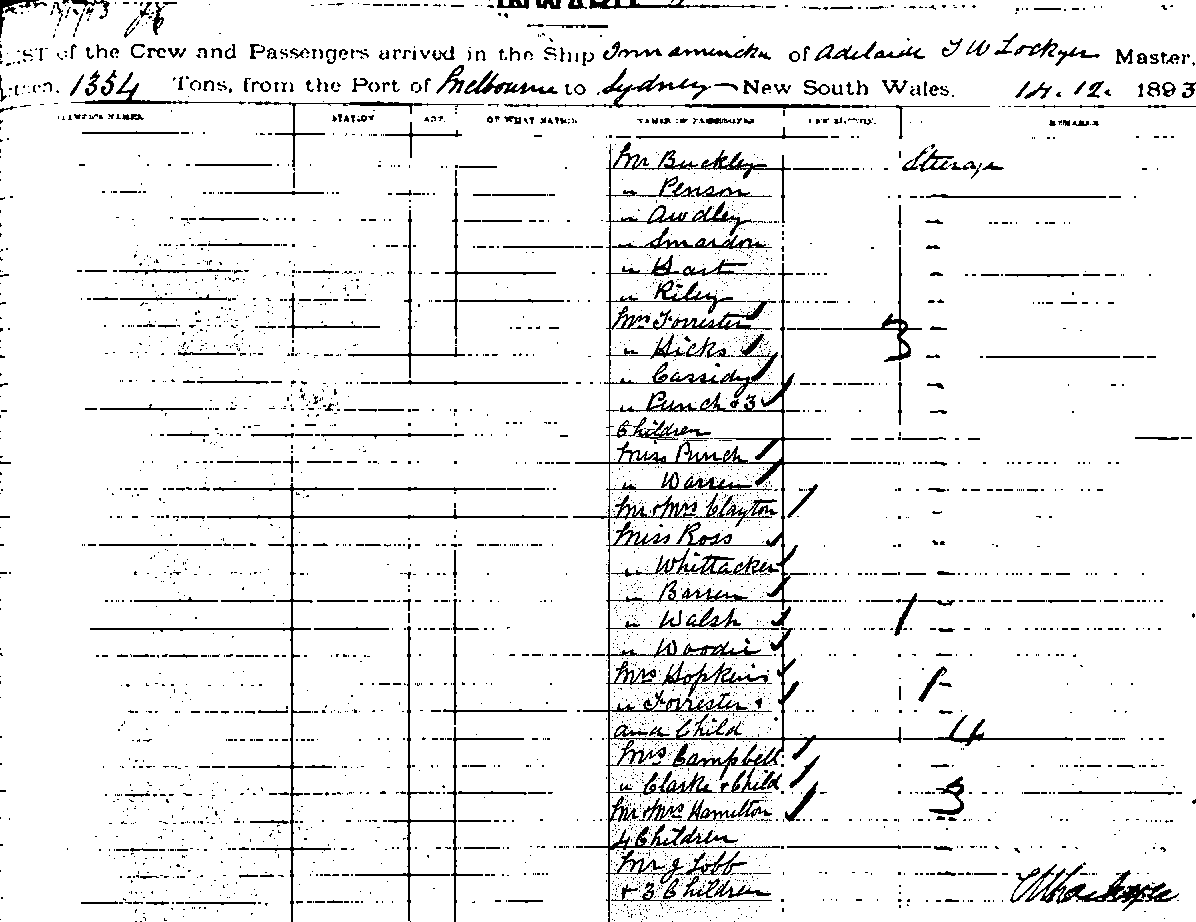 of the Crew and Passengers arrived in the Ship Innamincka of Adelaide T W Lockyer Master,
1354 Tons, from the Port of Melbourne to Sydney New South Wales. 14. 12. 1893
STATION AGE OF WHAT NATION NAMES OF PASSENGERS REMARKS
Mr Buckley Steerage
" Penson "
" Awdley "
" Smardon "
" Hart "
" Riley "
Mrs Forrester 3
" Hicks "
" Cassidy "
" Punch & 3 "
Children
Miss Punch "
" Warren "
Mr & Mrs Clayton "
Miss Ross "
" Whittacker "
" Barren "
" Walsh 1 "
" Woodie "
Mrs Hopkins "
" Forrester & "
and Child 4
Mrs Campbell "
" Clarke & Child "
Mr & Mrs Hamilton 3
4 Children "
Mr J Lobb "
& 3 Children "